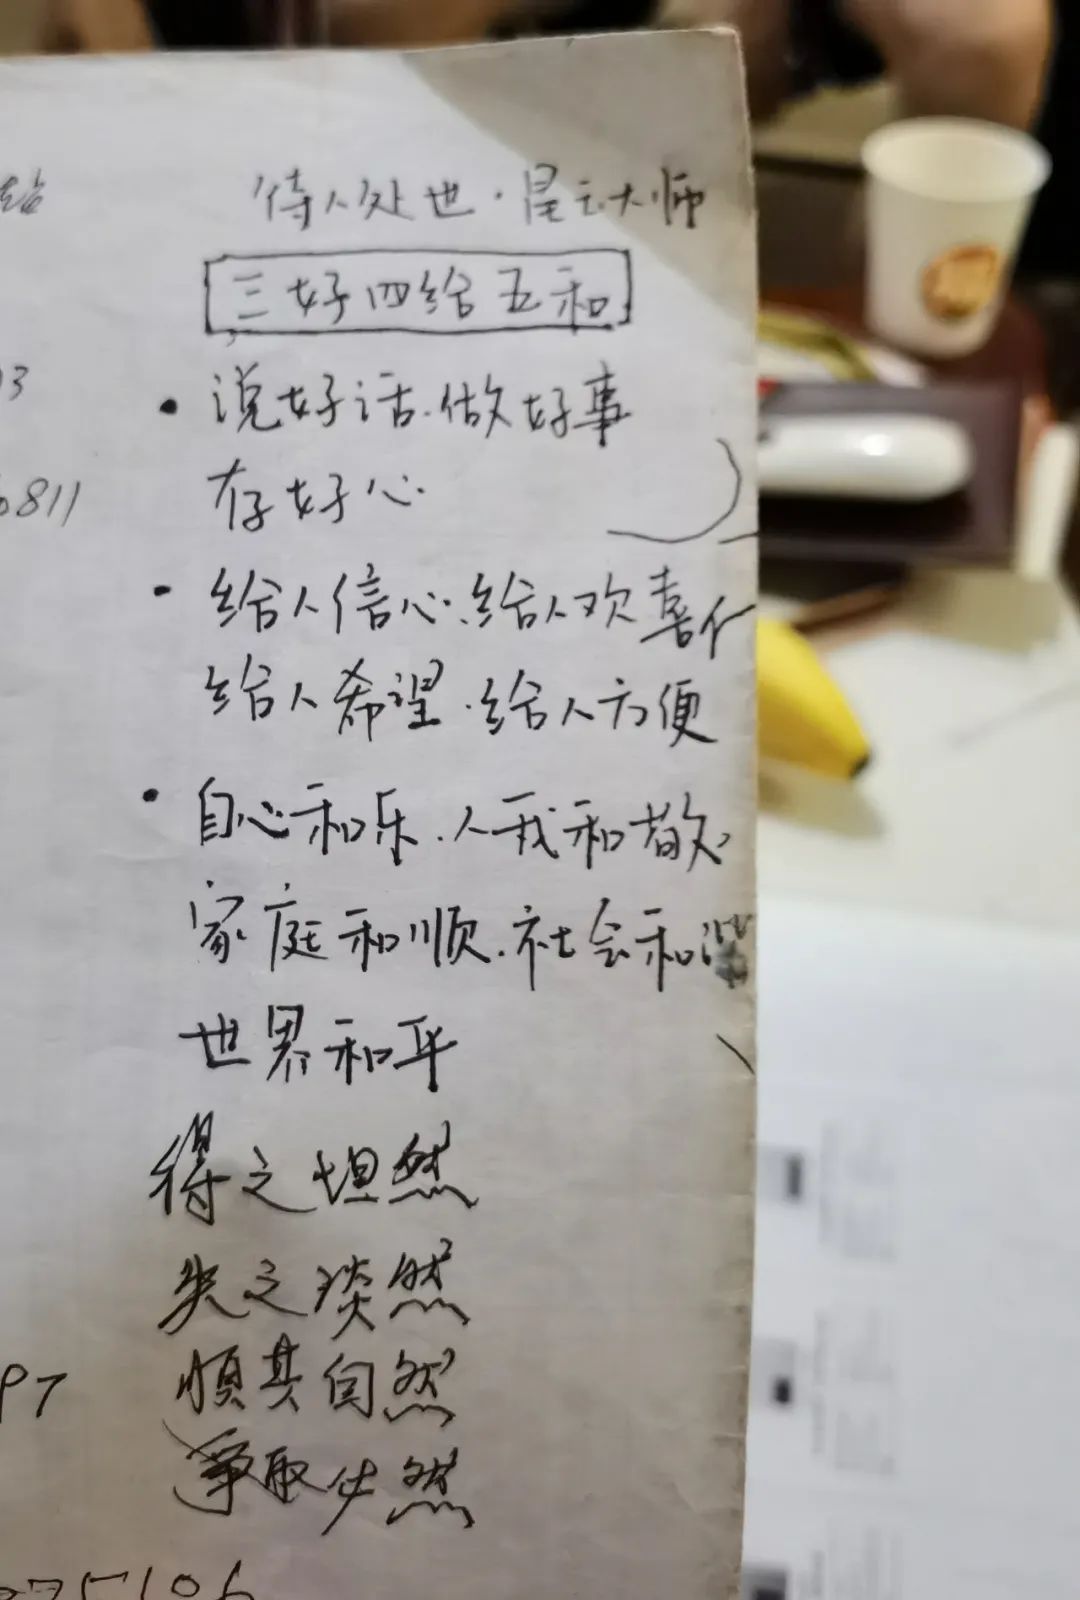 待人处世·星云大师
三好四给五和
·说好话.做好事
存好心.
·给人信心.给人欢喜
给人希望.给人方便
·自心和乐.人我和敬
家庭和顺.社会和谐
世界和平
得之坦然
失之淡然
順其自然
爭取必然
6811
97